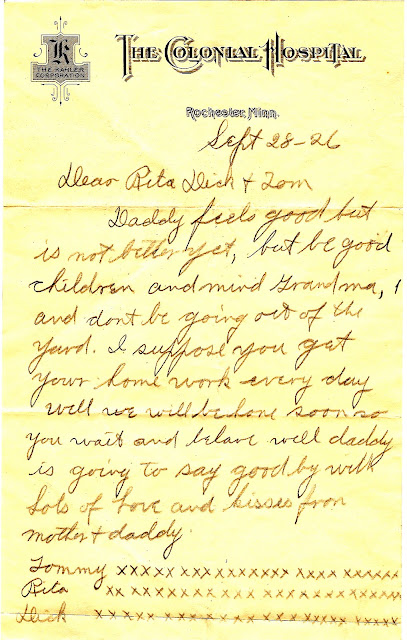 K
THE KAHLER
CORPORATION
THE COLONIAL HOSPITAL
Rochester, Minn.
Sept 28-26
Dear Rita Dick + Tom
Daddy feels good but
is not better yet, but be good
children and mind Grandma,
and dont be going out of the
yard. I suppose you get
your home work every day
well we will be home soon so
you wait and behave well daddy
is going to say good by with
Lots of Love and kisses from
mother + daddy.
Tommy xxxxxxxxxxxxxxxxxxxxxx
Rita xxxxxxxxxxxxxxxxxxxxxx
Dick xxxxxxxxxxxxxxxxxxxxxx